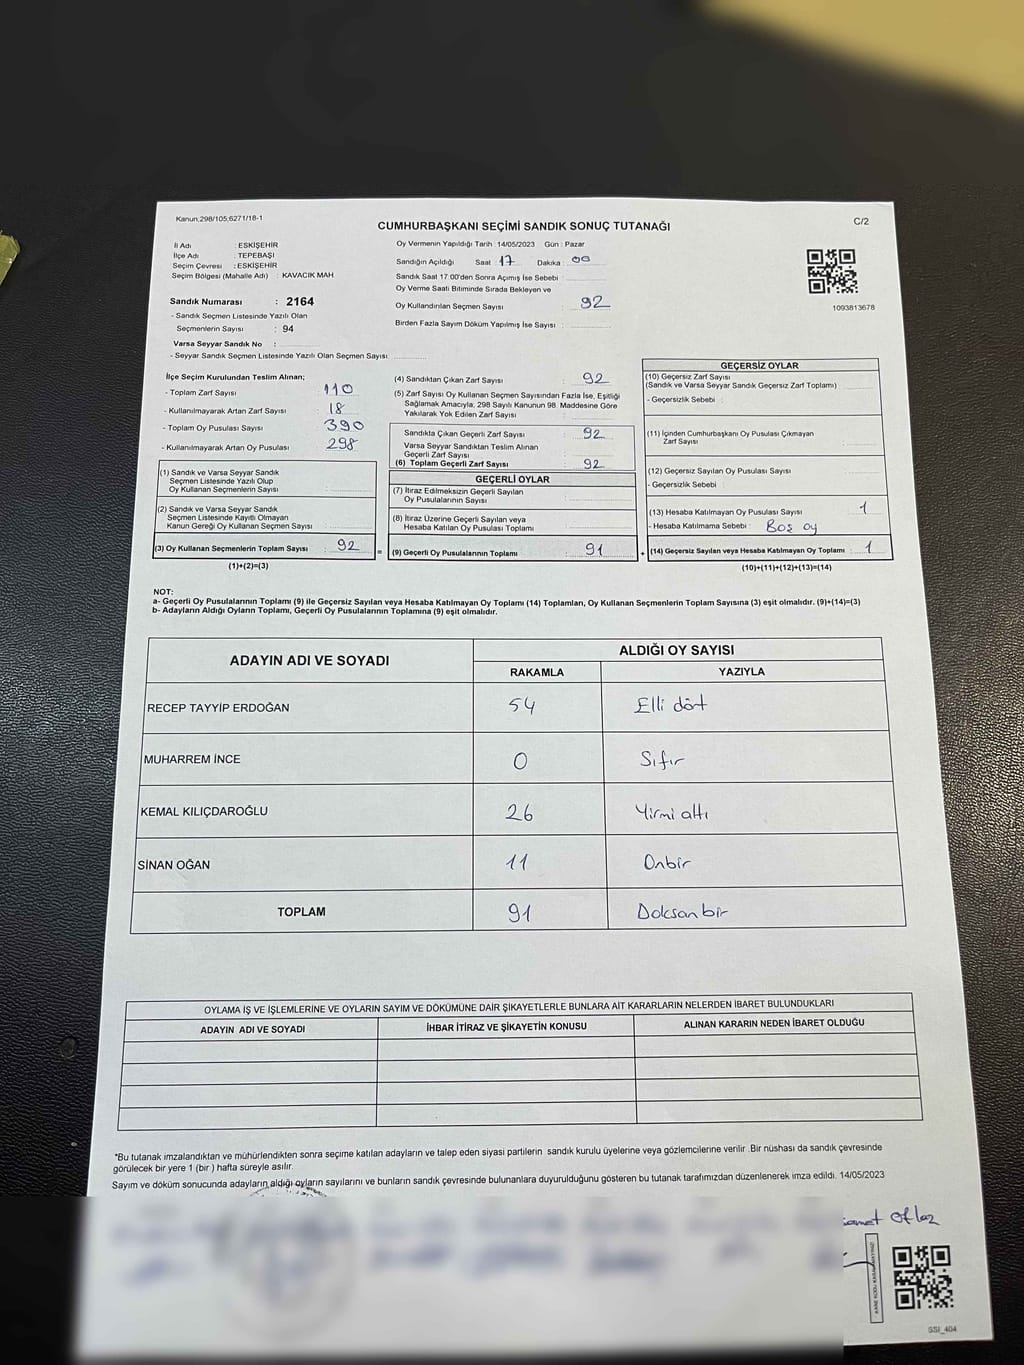 Kanun;298/105;6271/18-1
C/2
CUMHURBAŞKANI SEÇİMİ SANDIK SONUÇ TUTANAĞI
İl Adı : ESKİŞEHİR
İlçe Adı : TEPEBAŞI
Seçim Çevresi : ESKİŞEHİR
Seçim Bölgesi (Mahalle Adı) : KAVACIK MAH.
Sandık Numarası : 2164
- Sandık Seçmen Listesinde Yazılı Olan
Seçmenlerin Sayısı : 94
Varsa Seyyar Sandık No :
- Seyyar Sandık Seçmen Listesinde Yazılı Olan Seçmen Sayısı:
Oy Vermenin Yapıldığı Tarih : 14/05/2023 Gün : Pazar
Sandığın Açıldığı Saat : 17 Dakika : 00
Sandık Saat 17.00'den Sonra Açımış İse Sebebi :
Oy Verme Saati Bitiminde Sırada Bekleyen ve
Oy Kullandırılan Seçmen Sayısı : 92
Birden Fazla Sayım Döküm Yapılmış İse Sayısı :
1093813678
İlçe Seçim Kurulundan Teslim Alınan;
- Toplam Zarf Sayısı : 110
- Kullanılmayarak Artan Zarf Sayısı : 18
- Toplam Oy Pusulası Sayısı : 390
- Kullanılmayarak Artan Oy Pusulası : 298
(1) Sandık ve Varsa Seyyar Sandık
Seçmen Listesinde Yazılı Olup
Oy Kullanan Seçmenlerin Sayısı :
(2) Sandık ve Varsa Seyyar Sandık
Seçmen Listesinde Kayıtlı Olmayan
Kanun Gereği Oy Kullanan Seçmen Sayısı :
(3) Oy Kullanan Seçmenlerin Toplam Sayısı : 92
(1)+(2)=(3)
(4) Sandıktan Çıkan Zarf Sayısı : 92
(5) Zarf Sayısı Oy Kullanan Seçmen Sayısından Fazla İse, Eşitliği
Sağlamak Amacıyla, 298 Sayılı Kanunun 98. Maddesine Göre
Yakılarak Yok Edilen Zarf Sayısı :
Sandıkta Çıkan Geçerli Zarf Sayısı : 92
Varsa Seyyar Sandıktan Teslim Alınan
Geçerli Zarf Sayısı :
(6) Toplam Geçerli Zarf Sayısı : 92
GEÇERLİ OYLAR
(7) İtiraz Edilmeksizin Geçerli Sayılan
Oy Pusulalarının Sayısı :
(8) İtiraz Üzerine Geçerli Sayılan veya
Hesaba Katılan Oy Pusulası Toplamı :
= (9) Geçerli Oy Pusulalarının Toplamı : 91
GEÇERSİZ OYLAR
(10) Geçersiz Zarf Sayısı
(Sandık ve Varsa Seyyar Sandık Geçersiz Zarf Toplamı) :
- Geçersizlik Sebebi :
(11) İçinden Cumhurbaşkanı Oy Pusulası Çıkmayan
Zarf Sayısı :
(12) Geçersiz Sayılan Oy Pusulası Sayısı :
- Geçersizlik Sebebi :
(13) Hesaba Katılmayan Oy Pusulası Sayısı : 1
- Hesaba Katılmama Sebebi : Boş oy
+ (14) Geçersiz Sayılan veya Hesaba Katılmayan Oy Toplamı : 1
(10)+(11)+(12)+(13)=(14)
NOT:
a- Geçerli Oy Pusulalarının Toplamı (9) ile Geçersiz Sayılan veya Hesaba Katılmayan Oy Toplamı (14) Toplamları, Oy Kullanan Seçmenlerin Toplam Sayısına (3) eşit olmalıdır. (9)+(14)=(3)
b- Adayların Aldığı Oyların Toplamı, Geçerli Oy Pusulalarının Toplamına (9) eşit olmalıdır.
ADAYIN ADI VE SOYADI ALDIĞI OY SAYISI
RAKAMLA YAZIYLA
RECEP TAYYİP ERDOĞAN 54 Elli dört
MUHARREM İNCE 0 Sıfır
KEMAL KILIÇDAROĞLU 26 Yirmi altı
SİNAN OĞAN 11 Onbir
TOPLAM 91 Doksan bir
OYLAMA İŞ VE İŞLEMLERİNE VE OYLARIN SAYIM VE DÖKÜMÜNE DAİR ŞİKAYETLERLE BUNLARA AİT KARARLARIN NELERDEN İBARET BULUNDUKLARI
ADAYIN ADI VE SOYADI İHBAR İTİRAZ VE ŞİKAYETİN KONUSU ALINAN KARARIN NEDEN İBARET OLDUĞU
*Bu tutanak imzalandıktan ve mühürlendikten sonra seçime katılan adayların ve talep eden siyasi partilerin sandık kurulu üyelerine veya gözlemcilerine verilir. Bir nüshası da sandık çevresinde
görülecek bir yere 1 (bir ) hafta süreyle asılır.
Sayım ve döküm sonucunda adayların aldığı oyların sayılarını ve bunların sandık çevresinde bulunanlara duyurulduğunu gösteren bu tutanak tarafımızdan düzenlenerek imza edildi. 14/05/2023
GSI_404